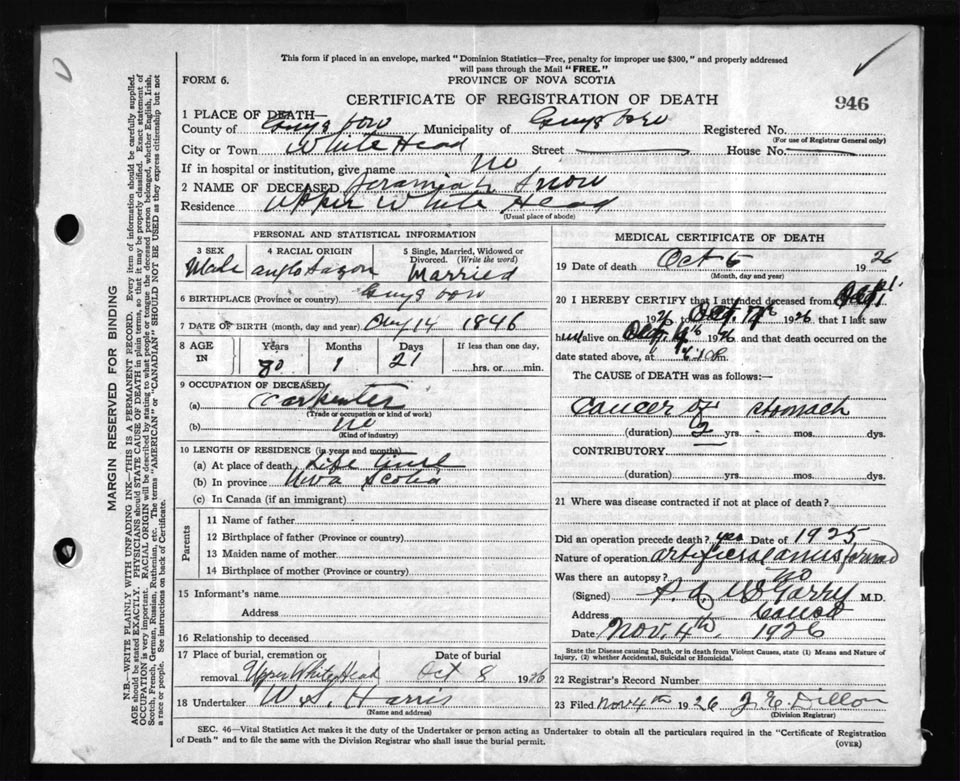 This form if placed in an envelope, marked "Dominion Statistics—Free, penalty for improper use $300," and properly addressed
will pass through the Mail "FREE."
FORM 6.
PROVINCE OF NOVA SCOTIA
CERTIFICATE OF REGISTRATION OF DEATH
946
1 PLACE OF DEATH—
County of Guysboro Municipality of Guysboro Registered No.
(For use of Registrar General only)
City or Town White Head Street House No.
If in hospital or institution, give name no
2 NAME OF DECEASED Jeramiah Snow
Residence Upper White Head
(Usual place of abode)
PERSONAL AND STATISTICAL INFORMATION
3 SEX 4 RACIAL ORIGIN 5 Single, Married, Widowed or
Divorced. (Write the word)
Male anglo Saxon Married
6 BIRTHPLACE (Province or country) Guysboro
7 DATE OF BIRTH (month, day and year) Aug 14 1846
8 AGE IN Years Months Days If less than one day,
80 1 21 hrs. or min.
9 OCCUPATION OF DECEASED
(a) Carpenter
(Trade or occupation or kind of work)
(b) no
(Kind of industry)
10 LENGTH OF RESIDENCE (in years and months)
(a) At place of death Life time
(b) In province Nova Scotia
(c) In Canada (if an immigrant)
Parents
11 Name of father
12 Birthplace of father (Province or country)
13 Maiden name of mother
14 Birthplace of mother (Province or country)
15 Informant's name
Address
16 Relationship to deceased
17 Place of burial, cremation or Date of burial
removal Upper White Head Oct 8 1926
18 Undertaker W. S. Harris
(Name and address)
MEDICAL CERTIFICATE OF DEATH
19 Date of death Oct 5 1926
(Month, day and year)
20 I HEREBY CERTIFY that I attended deceased from
1926 to Oct. 1926 that I last saw
him alive on 1926 and that death occurred on the
date stated above, at m.
The CAUSE of DEATH was as follows:—
cancer of stomach
(duration) 2 yrs. mos. dys.
CONTRIBUTORY
(duration) yrs. mos. dys.
21 Where was disease contracted if not at place of death?
Did an operation precede death? yes Date of 1925
Nature of operation artificial anus formed
Was there an autopsy? no
(Signed) M.D.
Address Canso
Date Nov. 4th, 1926
State the Disease causing Death, or in death from Violent Causes, state (1) Means and Nature of
Injury, (2) whether Accidental, Suicidal or Homicidal.
22 Registrar's Record Number
23 Filed Nov 4th 1926 J. E. Dillon
(Division Registrar)
SEC. 46—Vital Statistics Act makes it the duty of the Undertaker or person acting as Undertaker to obtain all the particulars required in the "Certificate of Registration
of Death" and to file the same with the Division Registrar who shall issue the burial permit.
(OVER)
MARGIN RESERVED FOR BINDING
N.B.—WRITE PLAINLY WITH UNFADING INK—THIS IS A PERMANENT RECORD. Every item of information should be carefully supplied.
AGE should be stated EXACTLY. PHYSICIANS should STATE CAUSE OF DEATH in plain terms, so that it may be properly classified. Exact statement of
OCCUPATION is very important. RACIAL ORIGIN will be described by stating to what people or tongue the deceased person belonged, whether English, Irish,
Scotch, French, German, Russian, Ruthenian, etc. The terms "AMERICAN" or "CANADIAN" SHOULD NOT BE USED as they express citizenship but not
a race or people. See instructions on back of Certificate.